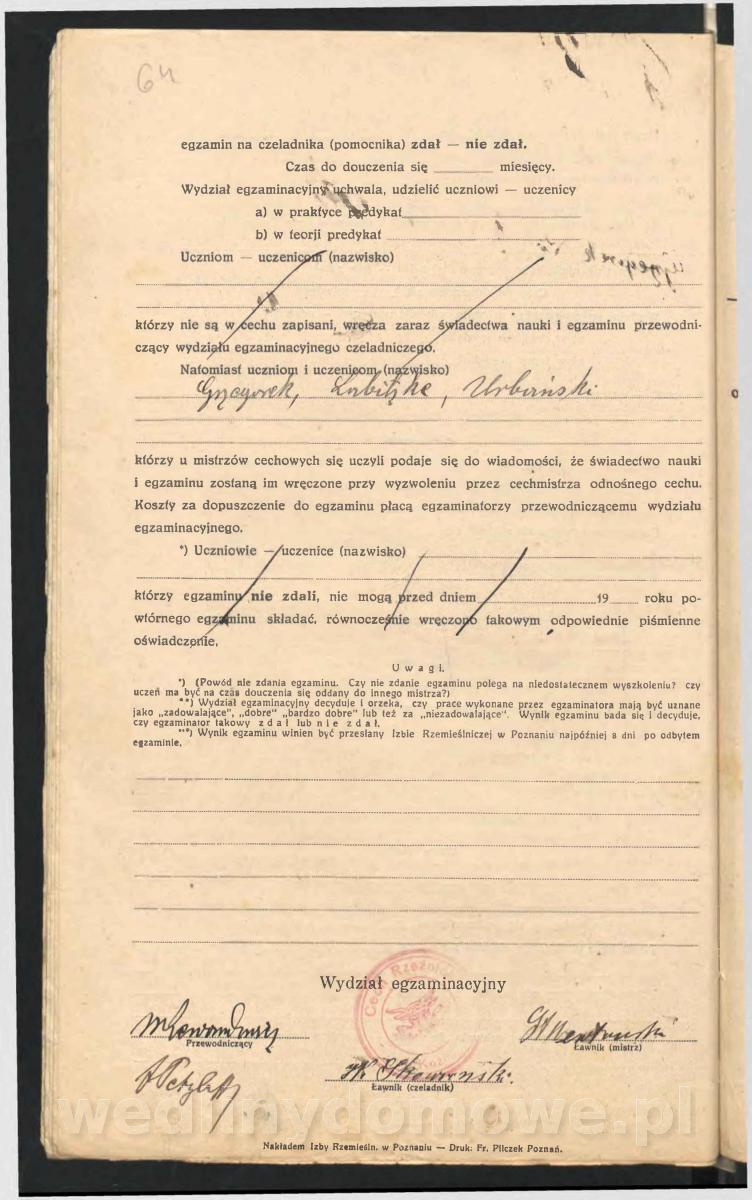 64
egzamin na czeladnika (pomocnika) zdał — nie zdał.
Czas do douczenia się ________ miesięcy.
Wydział egzaminacyjny uchwala, udzielić uczniowi — uczenicy
a) w praktyce predykat
b) w teorji predykat
Uczniom — uczenicom (nazwisko)
którzy nie są w cechu zapisani, wręcza zaraz świadectwa nauki i egzaminu przewodni-
czący wydziału egzaminacyjnego czeladniczego.
Natomiast uczniom i uczenicom (nazwisko)
Grzegorek, Urbański
którzy u mistrzów cechowych się uczyli podaje się do wiadomości, że świadectwo nauki
i egzaminu zostaną im wręczone przy wyzwoleniu przez cechmistrza odnośnego cechu.
Koszty za dopuszczenie do egzaminu płacą egzaminatorzy przewodniczącemu wydziału
egzaminacyjnego.
*) Uczniowie — uczenice (nazwisko)
którzy egzaminu nie zdali, nie mogą przed dniem 19 ____ roku po-
wtórnego egzaminu składać, równocześnie wręczono takowym odpowiednie piśmienne
oświadczenie.
Uwagi.
*) (Powód nie zdania egzaminu. Czy nie zdanie egzaminu polega na niedostatecznem wyszkoleniu? czy
uczeń ma być na czas douczenia się oddany do innego mistrza?)
**) Wydział egzaminacyjny decyduje i orzeka, czy prace wykonane przez egzaminatora mają być uznane
jako „zadowalające", „dobre" „bardzo dobre" lub też za „niezadowalające". Wynik egzaminu bada się i decyduje,
czy egzaminator takowy zdał lub nie zdał.
***) Wynik egzaminu winien być przesłany Izbie Rzemieślniczej w Poznaniu najpóźniej 8 dni po odbytem
egzaminie.
Cech Rzeźni
Wydział egzaminacyjny
Przewodniczący
Ławnik (mistrz)
Ławnik (czeladnik)
wedlinydomowe.pl
Nakładem Izby Rzemieśln. w Poznaniu — Druk: Fr. Pilczek Poznań.